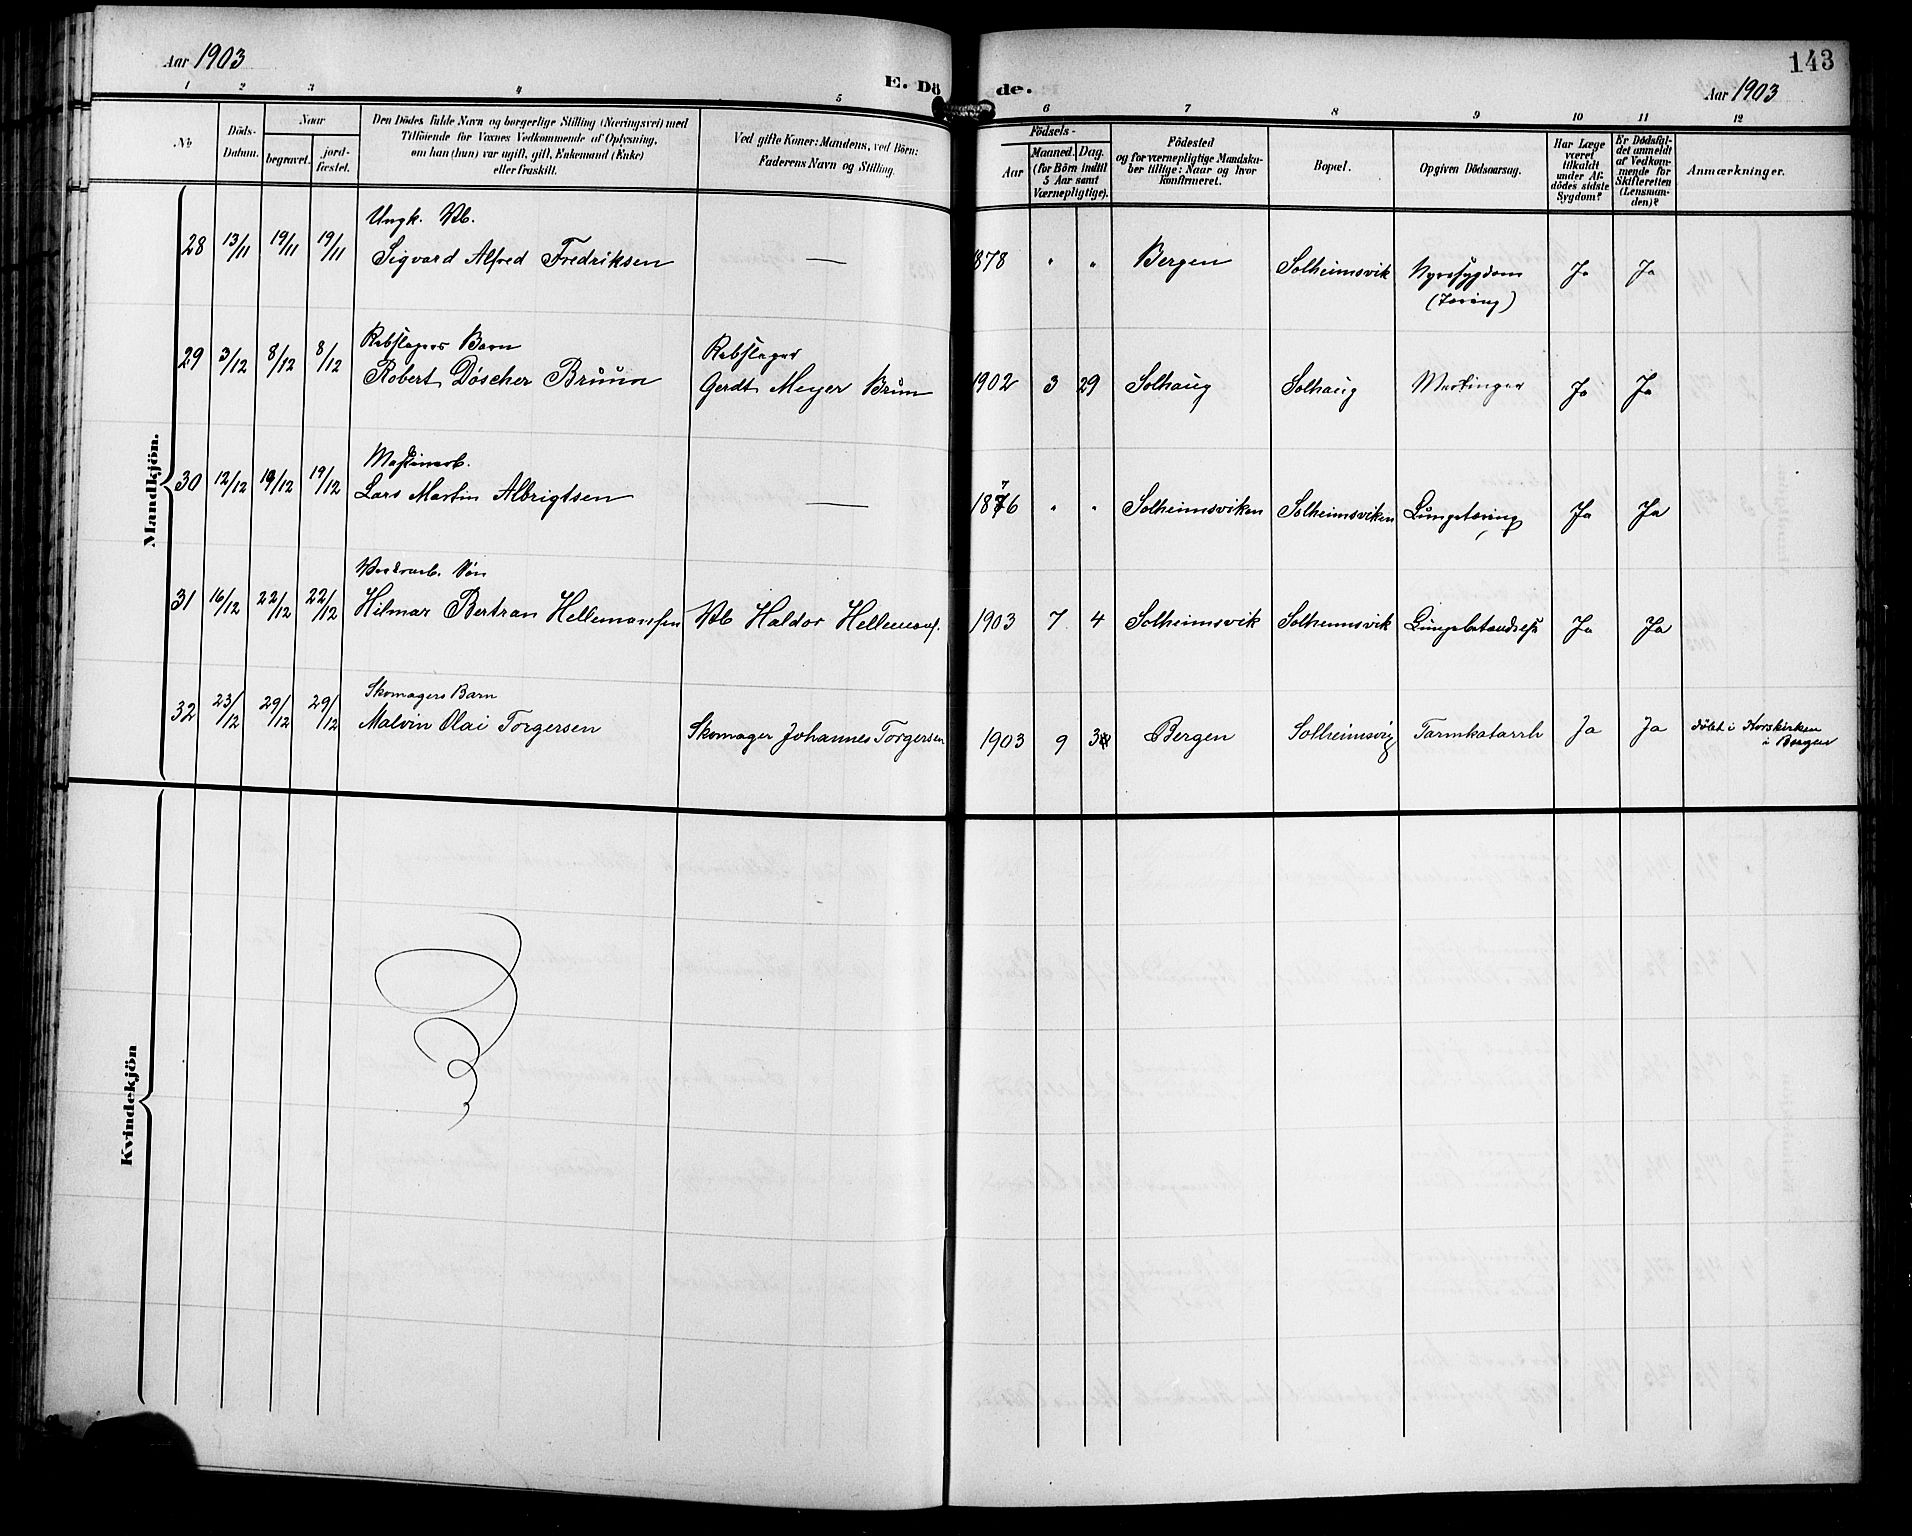 Aar 1903
E. Dö
de.
143
Aar 1903
1 2 3 4 5 6 7 8 9 10 11 12
No
Döds-
Datum.
Naar
begravet.
jord-
fæstet.
Den Dödes fulde Navn og borgerlige Stilling (Næringsvei) med
Tilföiende for Voxnes Vedkommende af Oplysning,
om han (hun) var ugift, gift, Enkemand (Enke)
eller fraskilt.
Ved gifte Koner: Mandens, ved Börn:
Faderens Navn og Stilling.
Födsels-
Aar
Maaned. Dag.
(for Börn indtil
5 Aar samt
Værnepligtige).
Födested
og for værnepligtige Mandska-
ber tillige: Naar og hvor
Konfirmeret.
Bopæl.
Opgiven Dödsaarsag.
Har Læge
været
tilkaldt
under Af-
dödes sidste
Sygdom?
Er Dödsfal-
det anmeldt
af Vedkom-
mende for
Skifteretten
(Lensman-
den)?
Anmærkninger.
Mandkjön.
Ungk. Vb.
28 13/11 19/11 19/11 Sigvard Alfred Fredriksen — 1878 " " Bergen Solheimsvik Nyresygdom Ja Ja
(Tæring)
Rebslagers Barn Rebslager
29 3/12 8/12 8/12 Robert Döscher Bruun Gerdt Meyer Brun 1902 3 29 Solhaug Solhaug Mæslinger Ja Ja
Maskinarb.
30 12/12 19/12 19/12 Lars Martin Albrigtsen — 1876 " " Solheimsviken Solheimsviken Lungetæring Ja Ja
Værksarb. Sön
31 16/12 22/12 22/12 Hilmar Bertran Hellemansen Vb Haldor Hellemans. 1903 7 4 Solheimsvik Solheimsvik Lungebetændelse Ja Ja
Skomagers Barn
32 23/12 29/12 29/12 Malvin Olai Torgersen Skomager Johannes Torgersen 1903 9 3 Bergen Solheimsvig Tarmkatarrh Ja Ja Döbt i Korskirken
i Bergen
Kvindekjön